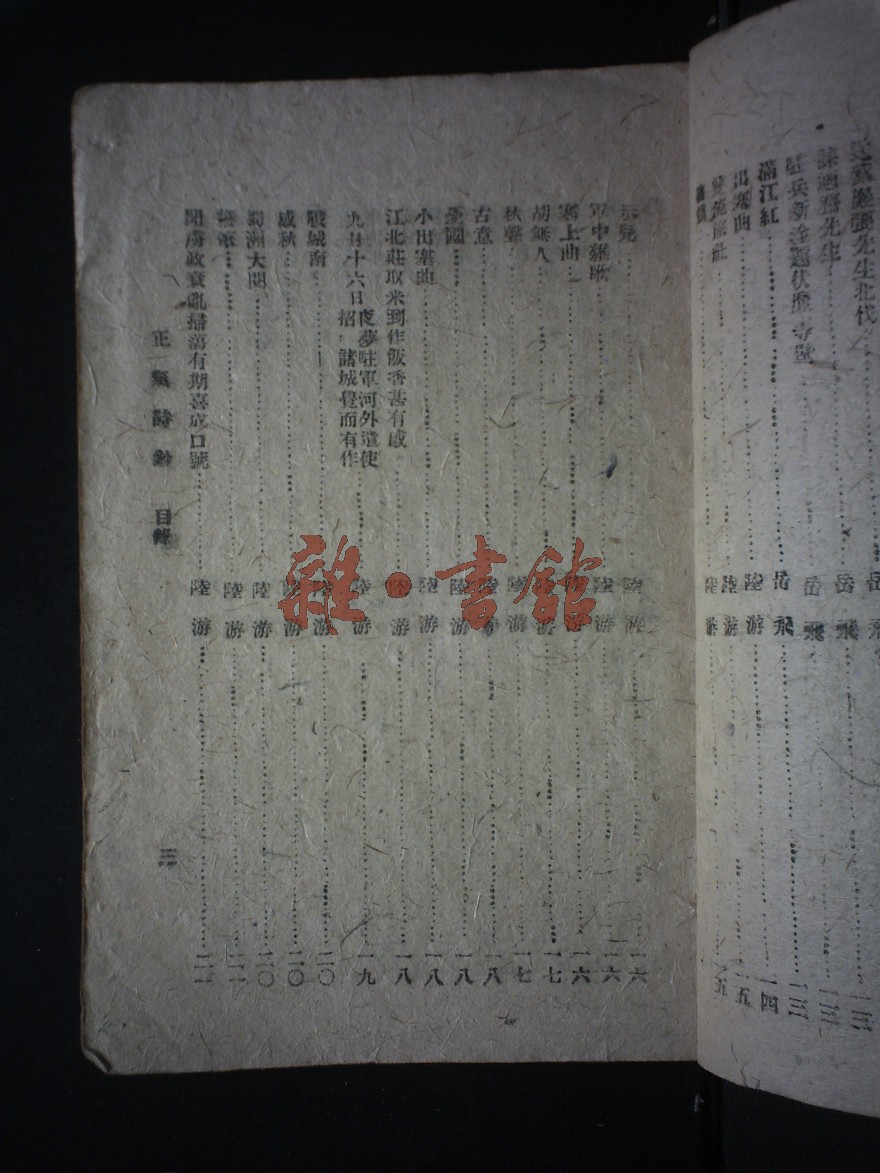 送 先生北伐……岳飛……一三
先生……岳飛……一三
駐兵新淦題伏魔寺壁……岳飛……一三
滿江紅……岳飛……一四
出塞曲……陸游……一五
陸游……一五
陸游
示兒……陸游……一六
軍中雜歌……陸游……一六
塞上曲……陸游……一六
胡無人……陸游……一七
秋聲……陸游……一七
古意……陸游……一八
憂國……陸游……一八
小出塞曲……陸游……一八
江北莊取米到作飯香甚有感……陸游……一八
九月十六日夜夢駐軍河外遣使招 諸城覺而有作……陸游……一九
戰城南……陸游……二〇
感秋……陸游……二〇
蜀州大閱……陸游……二〇
陸游……二一
聞虜政衰亂掃蕩有期喜成口號……陸游……二一
正氣詩鈔 目錄
三
雜·書館